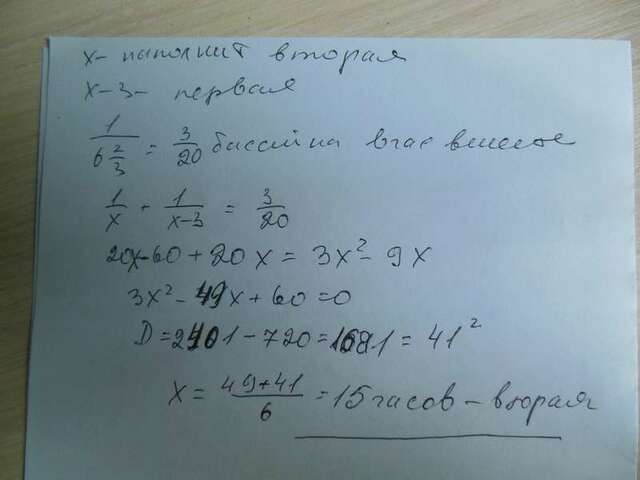 x - наполнит вторая
x-3 - первая
1/(6 2/3) = 3/20 бассейна в час вместе
1/x + 1/(x-3) = 3/20
20x-60+20x = 3x²-9x
3x²-49x+60=0
D=2401-720=1681=41²
x = (49+41)/6 = 15 часов - вторая